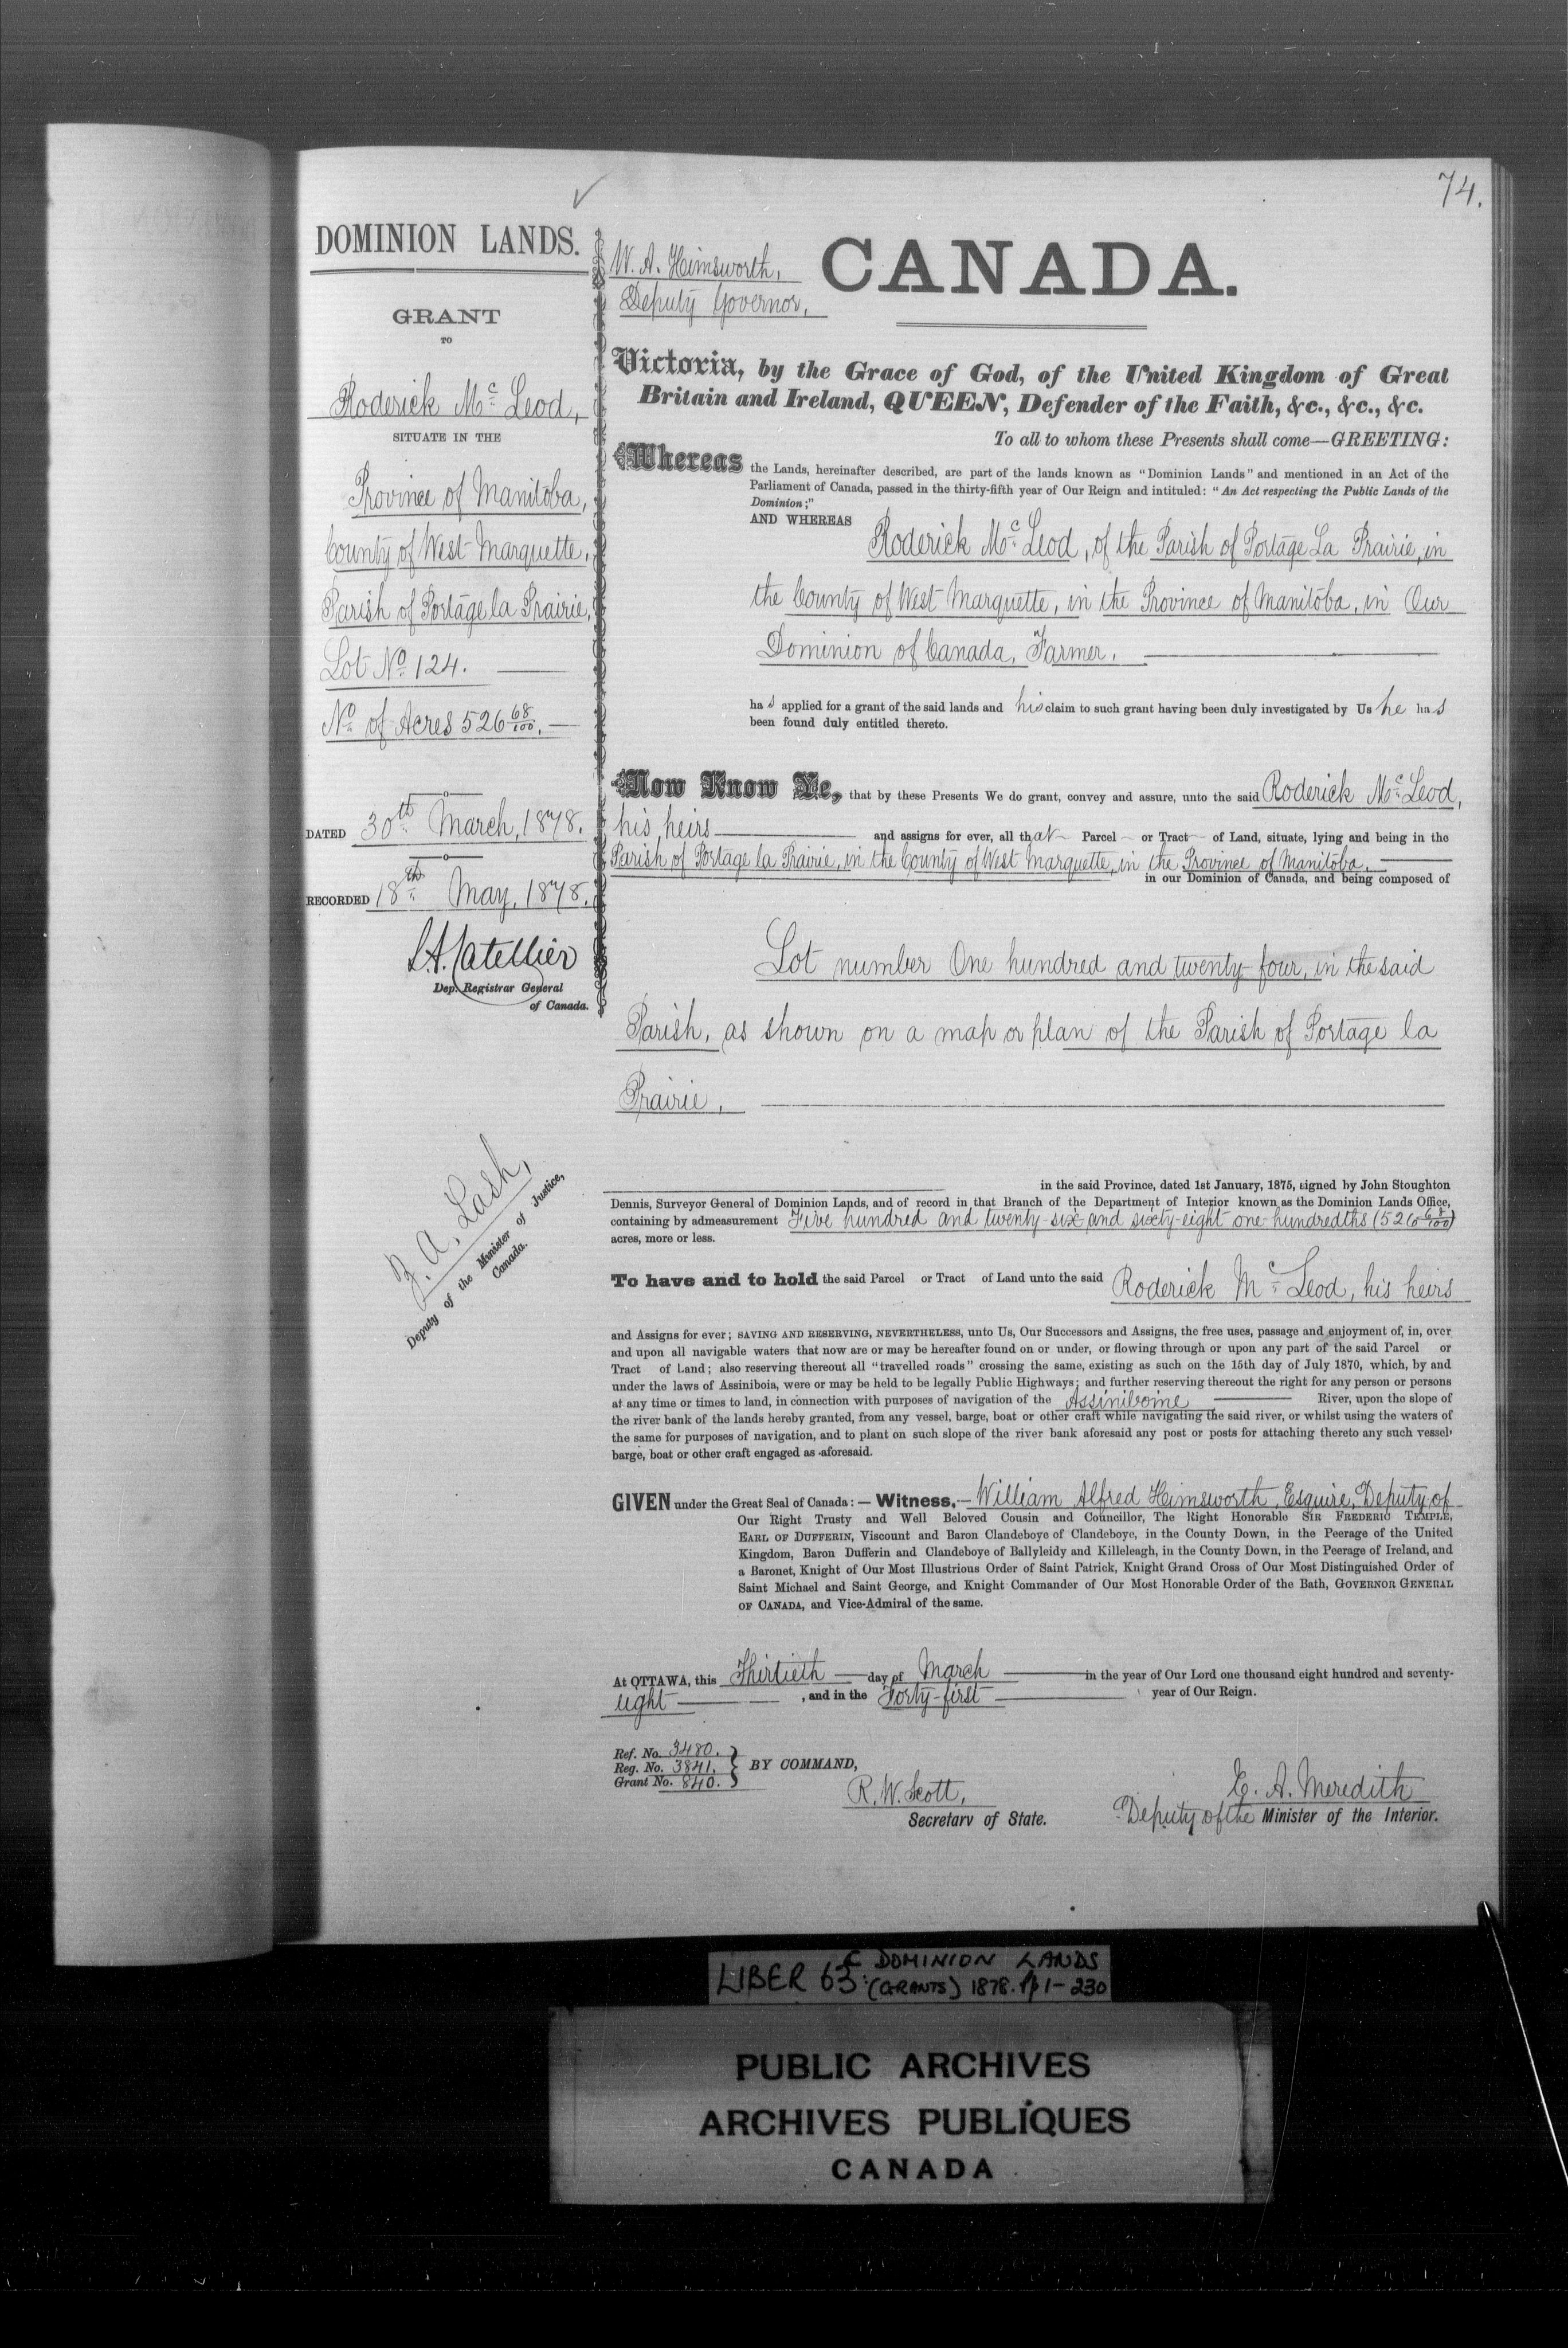 74.
DOMINION LANDS.
GRANT
TO
Roderick Mc Leod,
SITUATE IN THE
Province of Manitoba,
County of West Marquette,
Parish of Portage la Prairie,
Lot No 124.
No of Acres 526 68/100.
DATED 30th March, 1878.
RECORDED 18th May, 1878.
L.A. Catellier
Dep. Registrar General
of Canada.
Z. A. Lash,
Deputy of the Minister of Justice,
Canada.
W. A. Himsworth,
Deputy Governor,
CANADA.
Victoria, by the Grace of God, of the United Kingdom of Great
Britain and Ireland, QUEEN, Defender of the Faith, &c., &c., &c.
To all to whom these Presents shall come—GREETING:
Whereas the Lands, hereinafter described, are part of the lands known as "Dominion Lands" and mentioned in an Act of the
Parliament of Canada, passed in the thirty-fifth year of Our Reign and intituled: "An Act respecting the Public Lands of the
Dominion;"
AND WHEREAS Roderick Mc Leod, of the Parish of Portage La Prairie, in
the County of West Marquette, in the Province of Manitoba, in Our
Dominion of Canada, Farmer.
has applied for a grant of the said lands and his claim to such grant having been duly investigated by Us he has
been found duly entitled thereto.
Now Know Ye, that by these Presents We do grant, convey and assure, unto the said Roderick Mc Leod,
his heirs and assigns for ever, all that Parcel or Tract of Land, situate, lying and being in the
Parish of Portage la Prairie, in the County of West Marquette, in the Province of Manitoba,
in our Dominion of Canada, and being composed of
Lot number One hundred and twenty-four, in the said
Parish, as shown on a map or plan of the Parish of Portage la
Prairie,
in the said Province, dated 1st January, 1875, signed by John Stoughton
Dennis, Surveyor General of Dominion Lands, and of record in that Branch of the Department of Interior known as the Dominion Lands Office,
containing by admeasurement Five hundred and twenty-six and sixty-eight one-hundredths (526 68/100)
acres, more or less.
To have and to hold the said Parcel or Tract of Land unto the said Roderick Mc Leod, his heirs
and Assigns for ever; SAVING AND RESERVING, NEVERTHELESS, unto Us, Our Successors and Assigns, the free uses, passage and enjoyment of, in, over
and upon all navigable waters that now are or may be hereafter found on or under, or flowing through or upon any part of the said Parcel or
Tract of Land; also reserving thereout all "travelled roads" crossing the same, existing as such on the 15th day of July 1870, which, by and
under the laws of Assiniboia, were or may be held to be legally Public Highways; and further reserving thereout the right for any person or persons
at any time or times to land, in connection with purposes of navigation of the Assiniboine River, upon the slope of
the river bank of the lands hereby granted, from any vessel, barge, boat or other craft while navigating the said river, or whilst using the waters of
the same for purposes of navigation, and to plant on such slope of the river bank aforesaid any post or posts for attaching thereto any such vessel,
barge, boat or other craft engaged as aforesaid.
GIVEN under the Great Seal of Canada:—Witness,—William Alfred Himsworth, Esquire, Deputy of
Our Right Trusty and Well Beloved Cousin and Councillor, The Right Honorable SIR FREDERIC TEMPLE,
EARL OF DUFFERIN, Viscount and Baron Clandeboye of Clandeboye, in the County Down, in the Peerage of the United
Kingdom, Baron Dufferin and Clandeboye of Ballyleidy and Killeleagh, in the County Down, in the Peerage of Ireland, and
a Baronet, Knight of Our Most Illustrious Order of Saint Patrick, Knight Grand Cross of Our Most Distinguished Order of
Saint Michael and Saint George, and Knight Commander of Our Most Honorable Order of the Bath, GOVERNOR GENERAL
OF CANADA, and Vice-Admiral of the same.
At OTTAWA, this Thirtieth day of March in the year of Our Lord one thousand eight hundred and seventy-
eight, and in the Forty-first year of Our Reign.
Ref. No. 3480.
Reg. No. 3841.
Grant No. 840.
BY COMMAND,
R. W. Scott,
Secretary of State.
E. A. Meredith
Deputy of the Minister of the Interior.
LIBER 63: C DOMINION LANDS
(GRANTS) 1878. pp 1-230
PUBLIC ARCHIVES
ARCHIVES PUBLIQUES
CANADA